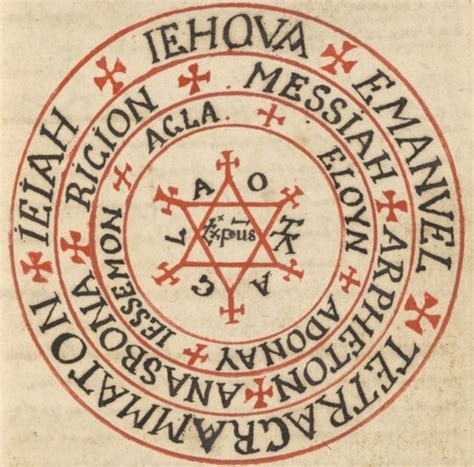 ✠ IEHOVA ✠ EMANVEL ✠ TETRAGRAMMATON ✠ IEIAH
✠ MESSIAH ✠ ARPHETON ✠ ANASBONA ✠ RIGION
✠ AGLA ✠ ELOYN ✠ ADONAY ✠ IESSEMON
A O
L
G A